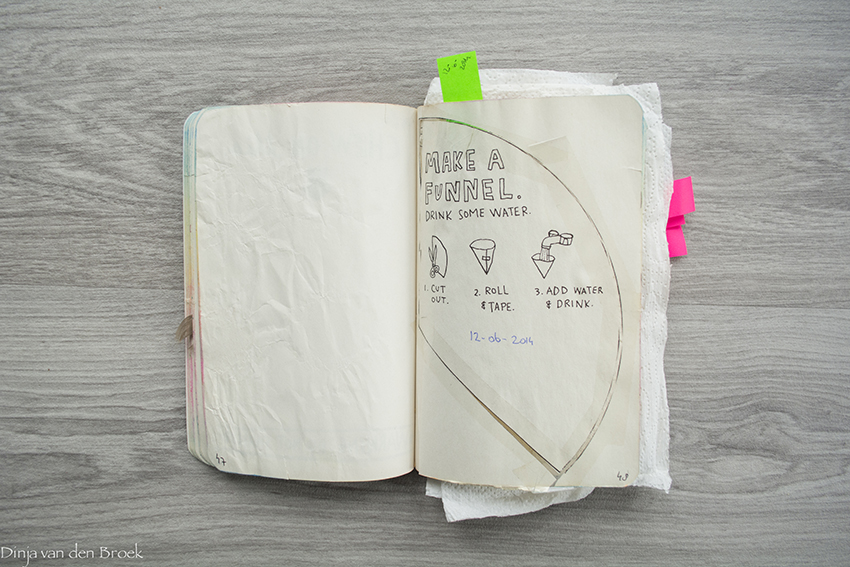 MAKE A
FUNNEL.
DRINK SOME WATER.
1. CUT
OUT.
2. ROLL
& TAPE.
3. ADD WATER
& DRINK.
12-06-2014
47
Dinja van den Broek